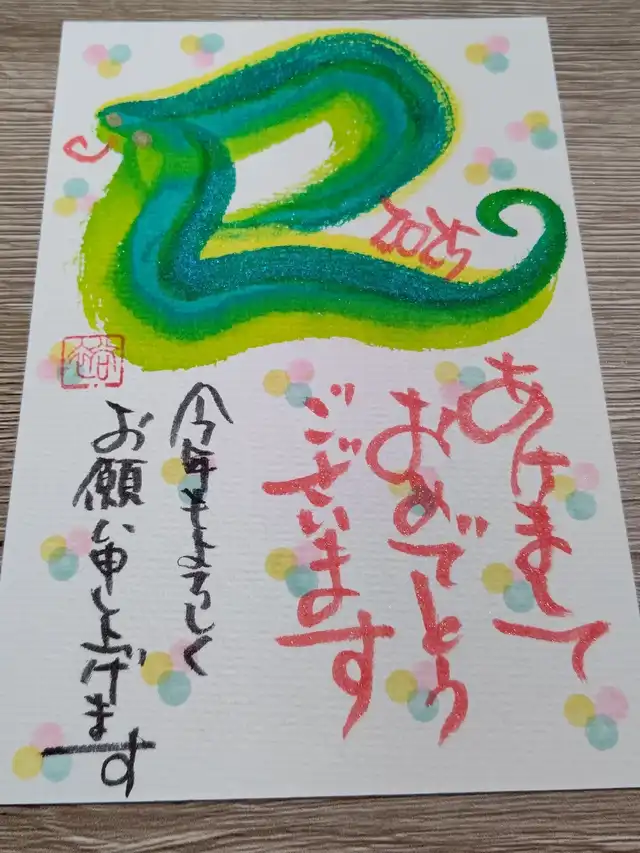 2025
あけまして
おめでとう
ございます
今年もよろしく
お願い申し上げます